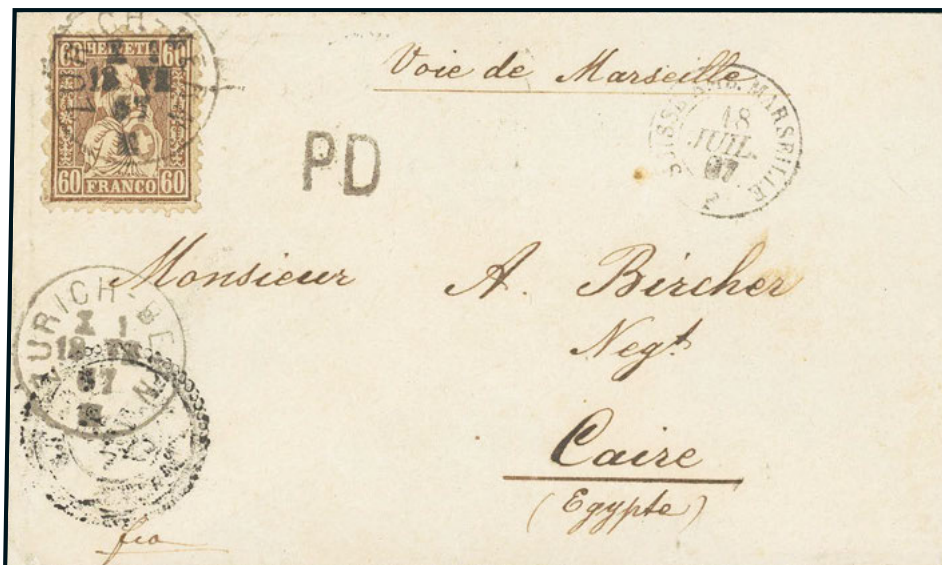 60 HELVETIA 60
60 FRANCO 60
Voie de Marseille
SUISSE AMB. MARSEILLE
18
JUIL.
67
2
PD
Monsieur A. Bircher
Negt
Caire
(Egypte)
ZURICH-BERN
I 1
18 VII
67
fco